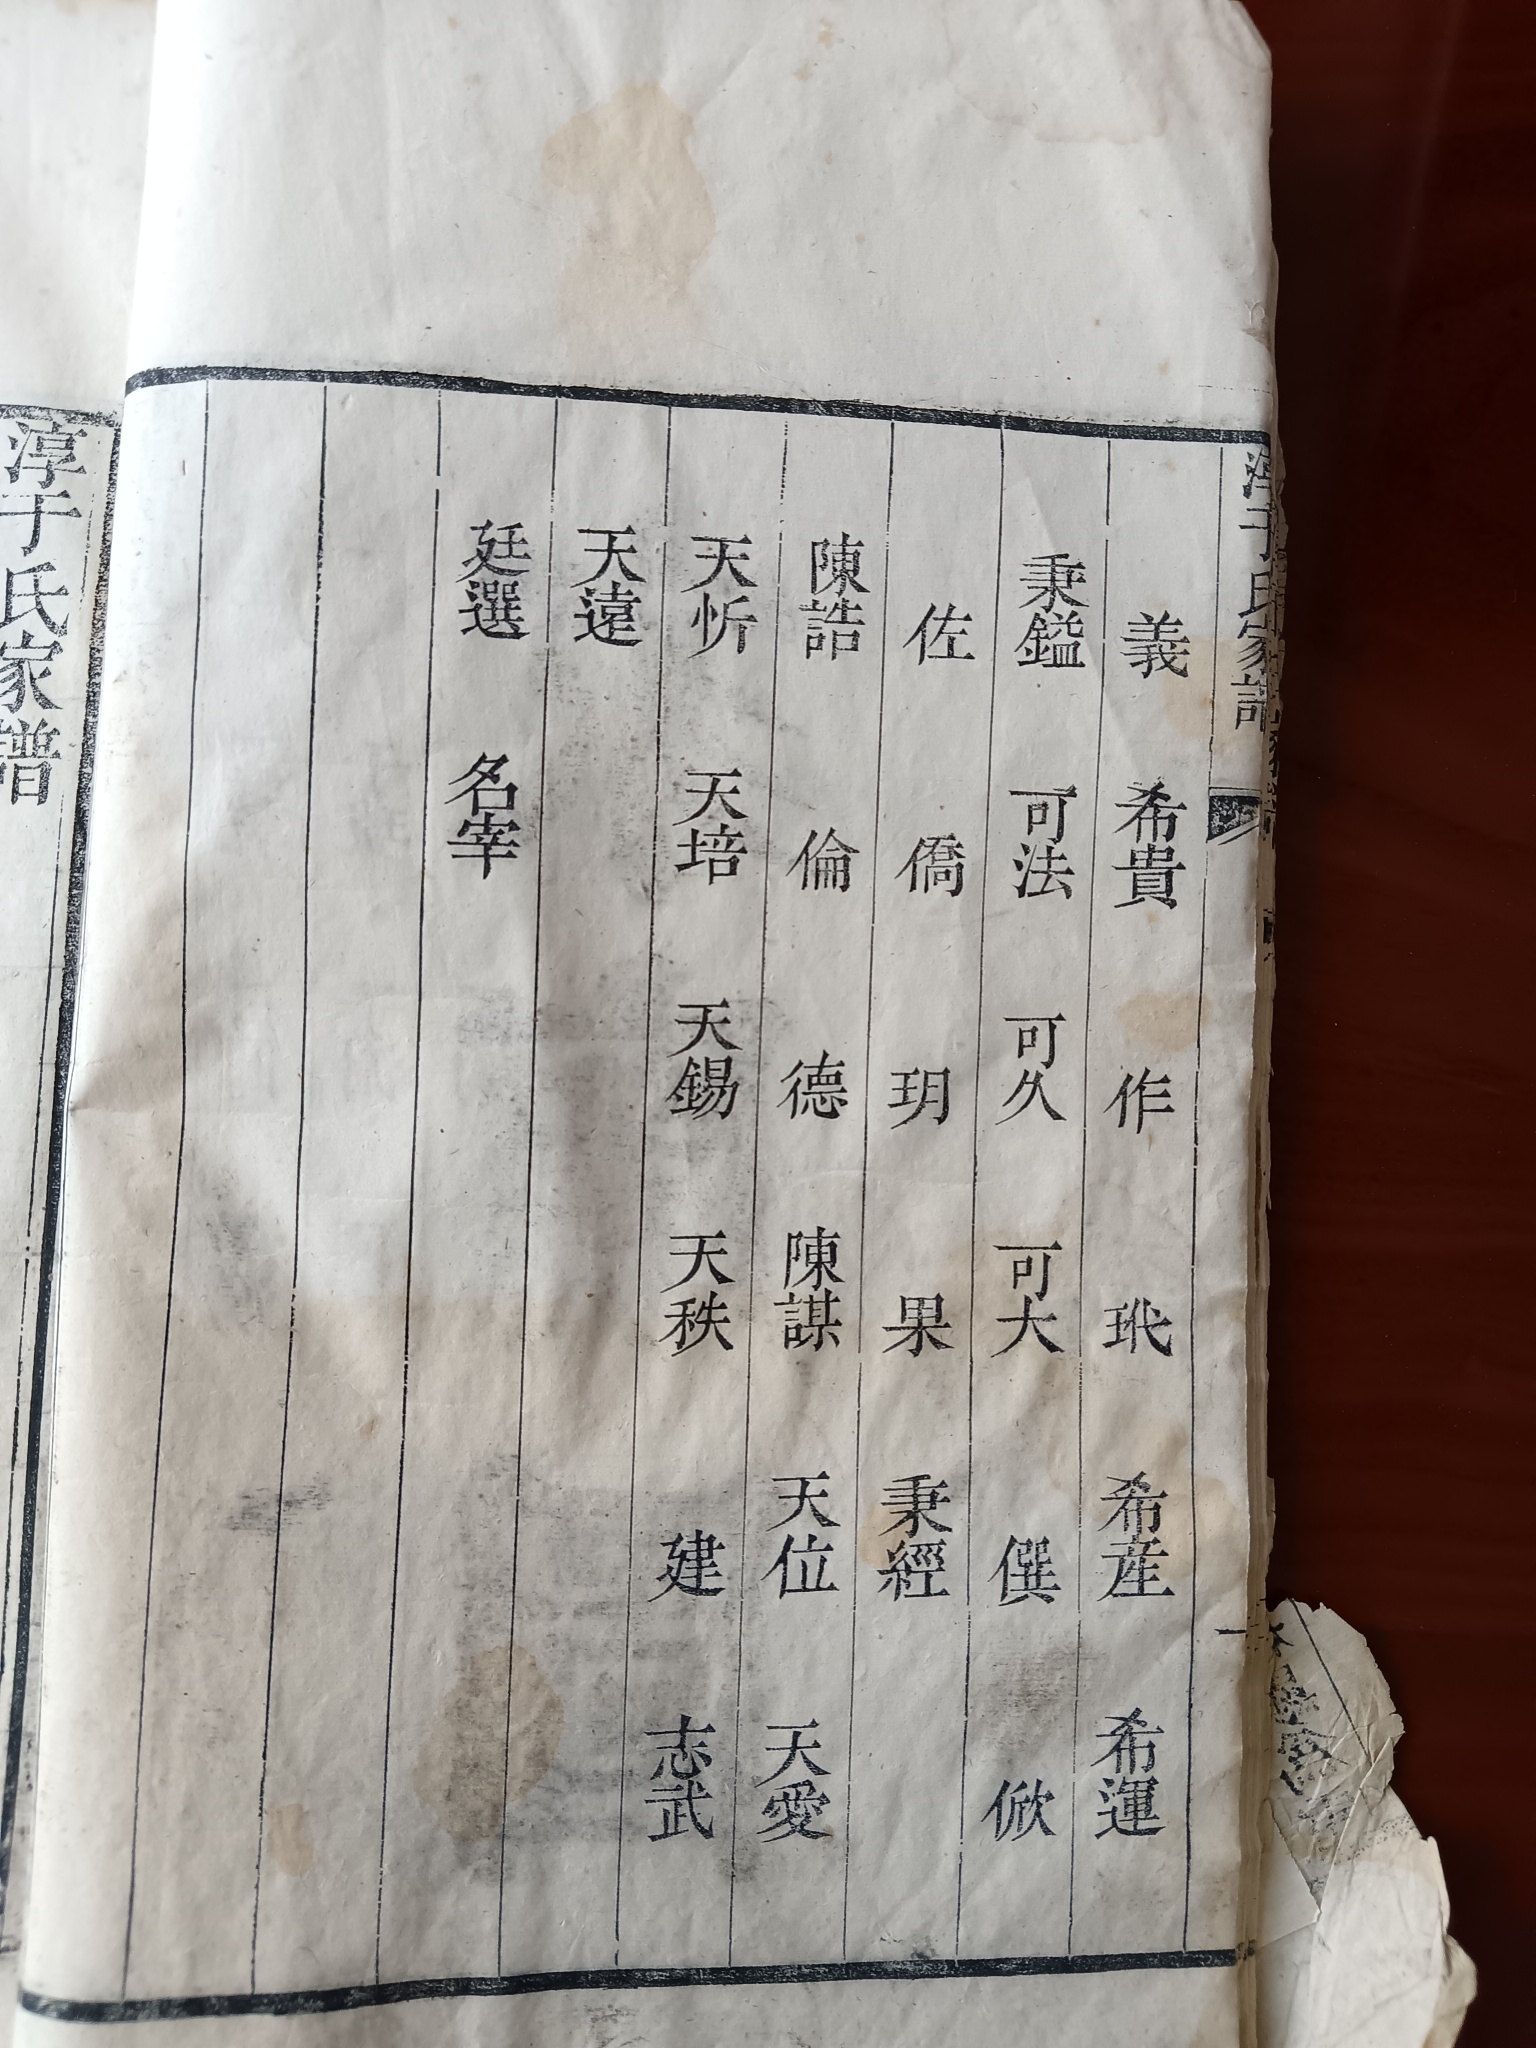 淳于氏家譜
義 希貴 作 玳 希産 希運
秉鎰 可法 可久 可大 僎 俽
佐 僑 玥 果 秉經
陳誥 倫 德 陳謀 天位 天愛
天忻 天培 天錫 天秩 建 志武
天遠
廷選 名宰
淳于氏家譜